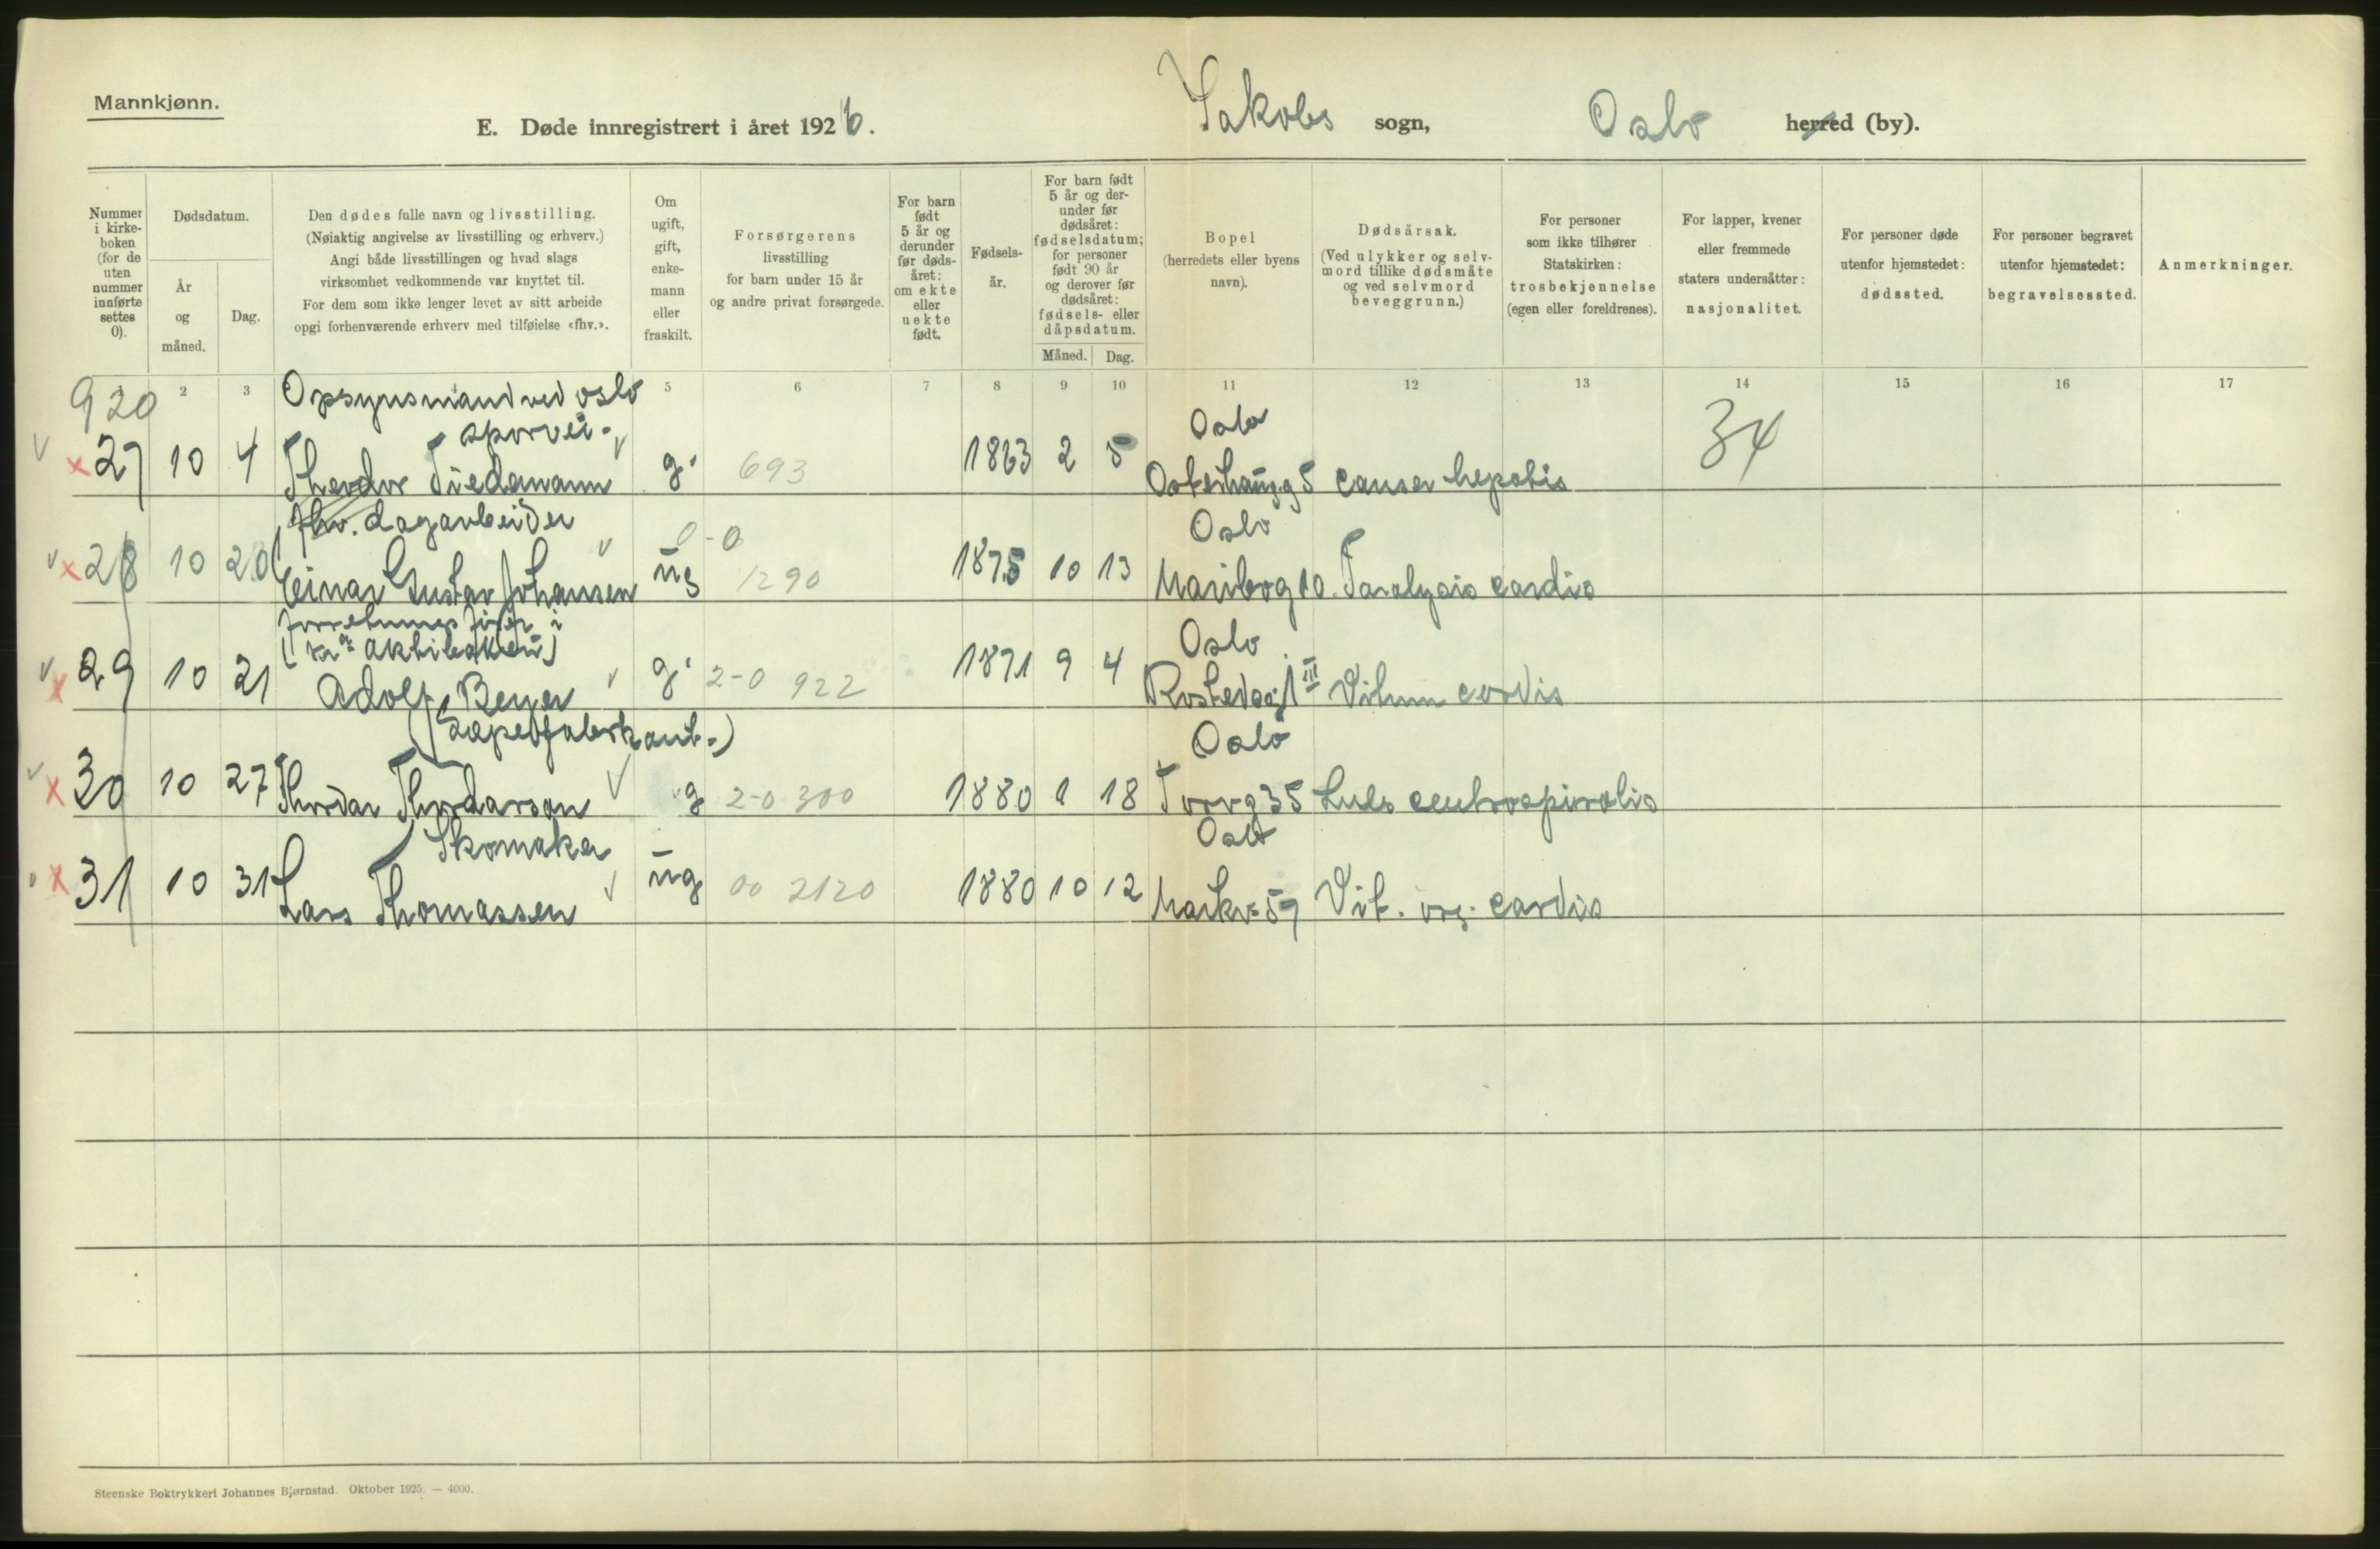 Mannkjønn.
E. Døde innregistrert i året 1926.
Jakobs sogn, Oslo herred (by).
Nummer i kirkeboken (for de uten nummer innførte settes 0).
Dødsdatum.
År og måned.
Dag.
Den dødes fulle navn og livsstilling.
(Nøiaktig angivelse av livsstilling og erhverv.)
Angi både livsstillingen og hvad slags
virksomhet vedkommende var knyttet til.
For dem som ikke lenger levet av sitt arbeide
opgi forhenværende erhverv med tilføielse «fhv.».
Om ugift, gift, enkemann eller fraskilt.
Forsørgerens
livsstilling
for barn under 15 år
og andre privat forsørgede.
For barn født 5 år og derunder før dødsåret: om ekte eller uekte født.
Fødselsår.
For barn født 5 år og derunder før dødsåret: fødselsdatum; for personer født 90 år og derover før dødsåret: fødsels- eller dåpsdatum.
Måned. Dag.
Bopel
(herredets eller byens
navn).
Dødsårsak.
(Ved ulykker og selvmord tillike dødsmåte og ved selvmord beveggrunn.)
For personer
som ikke tilhører
Statskirken:
trosbekjennelse
(egen eller foreldrenes).
For lapper, kvener
eller fremmede
staters undersåtter:
nasjonalitet.
For personer døde
utenfor hjemstedet:
dødssted.
For personer begravet
utenfor hjemstedet:
begravelsessted.
Anmerkninger.
2 3 4 5 6 7 8 9 10 11 12 13 14 15 16 17
920
Opsynsmand ved Oslo
sporvei.
Oslo
34
27 10 4 Theodor Tiedemann g. 693 1863 2 5 Osterhausg 5 cancer hepatis
fhv. dagarbeider
0-0
Oslo
28 10 20 Einar Gustav Johansen ug 1290 1875 10 13 Maribog 10. Paralysis cordis
Oslo
29 10 21 Adolf Beyer g. 2-0 922 1871 9 4 III Vitium cordis
(Såpefabrikant.)
Oslo
30 10 27 Thordar Thordarson g 2-0 300 1880 1 18 Torvg 35 Lues cerebrospinalis
Skomaker
Oslo
31 10 31 Lars Thomassen ug 00 2120 1880 10 12 Markv. 59 Vit. org. cordis
Steenske Boktrykkeri Johannes Bjørnstad. Oktober 1925. — 4000.